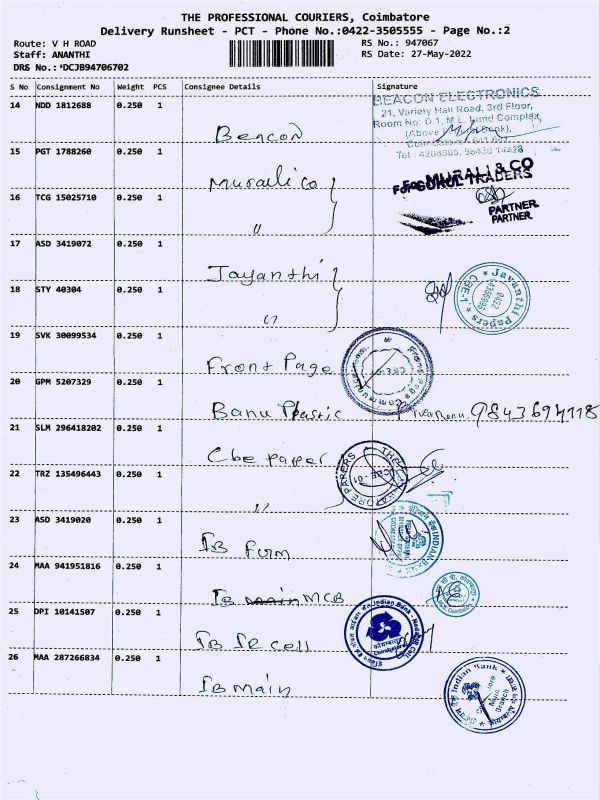 THE PROFESSIONAL COURIERS, Coimbatore
Delivery Runsheet - PCT - Phone No.:0422-3505555 - Page No.:2
Route: V H ROAD
RS No.: 947067
Staff: ANANTHI
RS Date: 27-May-2022
DRS No.:*DCJB94706702
S No Consignment No Weight PCS Consignee Details Signature
14 NDD 1812688 0.250 1
Beacon
BEACON ELECTRONICS
21, Variety Hall Road, 3rd Floor,
Room No: D.1, M.L. Lund Complex,
(Above Bank),
Coimbatore - 641 001
15 PGT 1788260 0.250 1
Murali co
MURALI & CO
GOKUL TRADERS
16 TCG 15025710 0.250 1
"
PARTNER
PARTNER
17 ASD 3419072 0.250 1
Jayanthi
Jayanthi Papers * CBE-1 *
0422
18 STY 40304 0.250 1
"
19 SVK 30099534 0.250 1
Front Page
20 GPM 5207329 0.250 1
Banu Plastic
21 SLM 296418202 0.250 1
Cbe paper
22 TRZ 135496443 0.250 1
"
23 ASD 3419020 0.250 1
IB Firm
INDIAN BANK
24 MAA 941951816 0.250 1
IB main MCB
25 DPI 10141507 0.250 1
IB SR cell
Indian Bank
26 MAA 287266834 0.250 1
IB main
Indian Bank